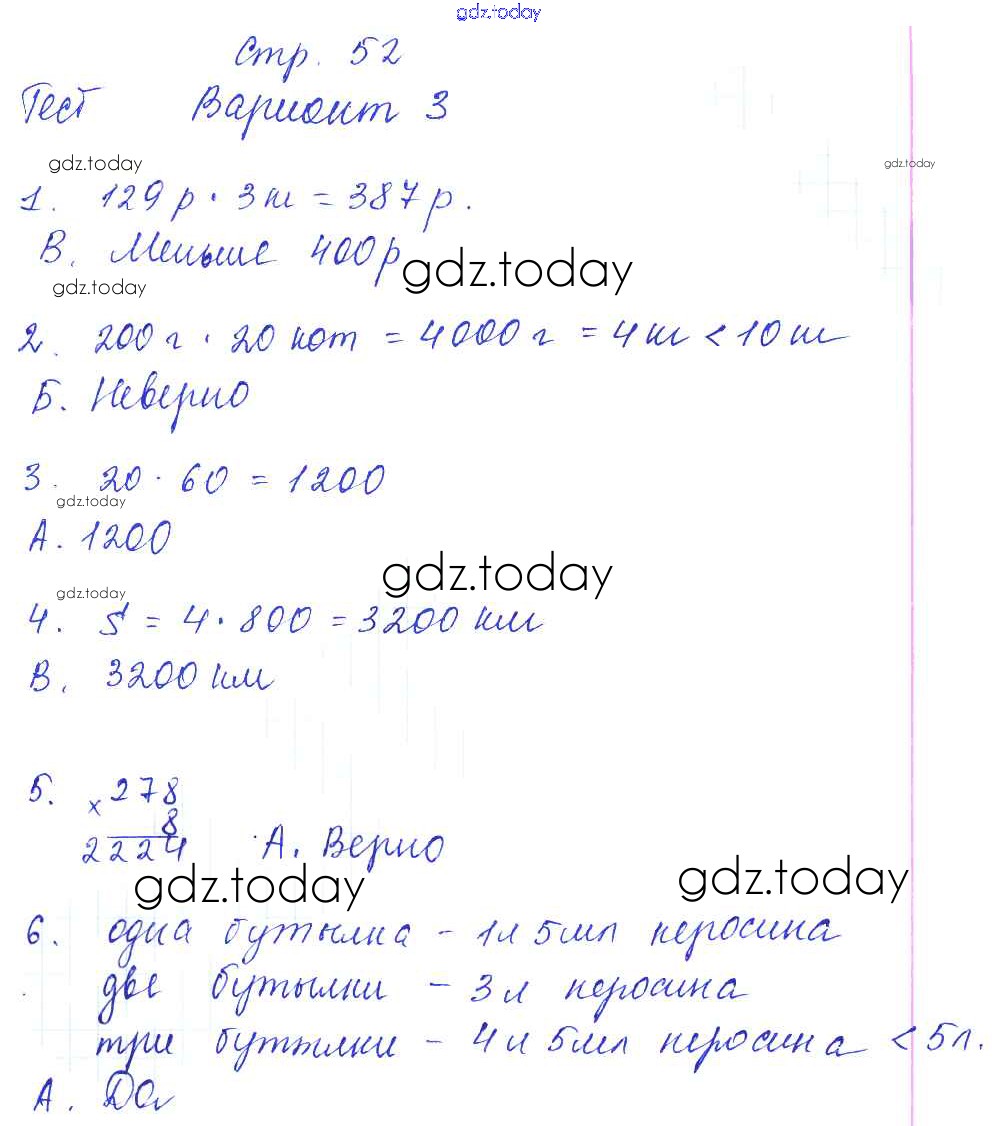 gdz.today
Стр. 52
Тест Вариант 3
gdz.today
gdz.today
1. 129 р · 3 ш = 387 р.
В. Меньше 400 р
gdz.today
gdz.today
2. 200 г · 20 кот = 4000 г = 4 кг < 10 кг
Б. Неверно
3. 20 · 60 = 1200
gdz.today
А. 1200
gdz.today
gdz.today
4. S = 4 · 800 = 3200 км
В. 3200 км
5. х 278
8
2224 А. Верно
gdz.today
gdz.today
6. одна бутылка - 1 л 5 мл керосина
две бутылки - 3 л керосина
три бутылки - 4 л 5 мл керосина < 5 л.
А. Да